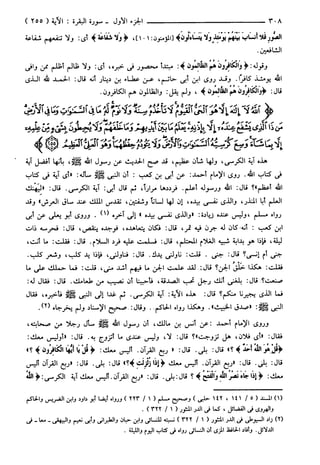 ٣٠٨ الجزء الأول - سورة البقرة: الآية (٢٥٥)
الصُّورِ فَلَا أَنسَابَ بَيْنَهُمْ يَوْمَئِذٍ وَلَا يَتَسَاءَلُونَ﴾ [المؤمنون: ١٠١]، ﴿وَلَا شَفَاعَةٌ﴾ أي: ولا تنفعهم شفاعة
الشافعين.
وقوله: ﴿وَالْكَافِرُونَ هُمُ الظَّالِمُونَ﴾: مبتدأ محصور في خبره، أي: ولا ظالم أظلم ممن وافى
الله يومئذ كافراً. وقد روى ابن أبي حاتم، عن عطاء بن دينار أنه قال: الحمد لله الذي
قال: ﴿وَالْكَافِرُونَ هُمُ الظَّالِمُونَ﴾، ولم يقل: والظالمون هم الكافرون.
﴿اللَّهُ لَا إِلَهَ إِلَّا هُوَ الْحَيُّ الْقَيُّومُ لَا تَأْخُذُهُ سِنَةٌ وَلَا نَوْمٌ لَهُ مَا فِي السَّمَاوَاتِ وَمَا فِي الْأَرْضِ
مَن ذَا الَّذِي يَشْفَعُ عِندَهُ إِلَّا بِإِذْنِهِ يَعْلَمُ مَا بَيْنَ أَيْدِيهِمْ وَمَا خَلْفَهُمْ وَلَا يُحِيطُونَ بِشَيْءٍ مِّنْ عِلْمِهِ
إِلَّا بِمَا شَاءَ وَسِعَ كُرْسِيُّهُ السَّمَاوَاتِ وَالْأَرْضَ وَلَا يَئُودُهُ حِفْظُهُمَا وَهُوَ الْعَلِيُّ الْعَظِيمُ ﴿٢٥٥﴾﴾
هذه آية الكرسي، ولها شأن عظيم، قد صح الحديث عن رسول الله ﷺ، بأنها أفضل آية
في كتاب الله. روى الإمام أحمد: عن أبي بن كعب: أن النبي ﷺ سأله: «أي آية في كتاب
الله أعظم»؟ قال: الله ورسوله أعلم. فرددها مراراً، ثم قال أبي: آية الكرسي. قال: «ليهنك
العلم أبا المنذر، والذي نفسي بيده، إن لها لساناً وشفتين، تقدس الملك عند ساق العرش» وقد
رواه مسلم، وليس عنده زيادة: «والذي نفسي بيده» إلى آخره (١). وروى أبو يعلى عن أبي
ابن كعب: أنه كان له جرن فيه تمر، قال: فكان يتعاهده، فوجده ينقص، قال: فحرسه ذات
ليلة، فإذا هو بدابة شبيه الغلام المحتلم، قال: فسلمت عليه فرد السلام. قال: فقلت: ما أنت،
جني أم إنسي؟ قال: جني. قلت: ناولني يدك. قال: فناولني، فإذا يد كلب، وشعر كلب.
فقلت: هكذا خَلْقُ الجن؟ قال: لقد علمت الجن ما فيهم أشد مني، قلت: فما حملك على ما
صنعت؟ قال: بلغني أنك رجل تحب الصدقة، فأحببنا أن نصيب من طعامك. قال: فقال له:
فما الذي يجيرنا منكم؟ قال: هذه الآية: آية الكرسي. ثم غدا إلى النبي ﷺ فأخبره، فقال
النبي ﷺ: «صدق الخبيث». وهكذا رواه الحاكم. وقال: صحيح الإسناد ولم يخرجاه (٢).
وروى الإمام أحمد: عن أنس بن مالك، أن رسول الله ﷺ سأل رجلاً من صحابته،
فقال: «أي فلان، هل تزوجت»؟ قال: لا، وليس عندي ما أتزوج به. قال: «أوليس معك:
﴿قُلْ هُوَ اللَّهُ أَحَدٌ﴾؟» قال: بلى. قال: «ربع القرآن. أليس معك: ﴿قُلْ يَا أَيُّهَا الْكَافِرُونَ﴾؟»
قال: بلى. قال: «ربع القرآن. أليس معك: ﴿إِذَا زُلْزِلَتِ﴾؟» قال: بلى. قال: «ربع القرآن أليس
معك: ﴿إِذَا جَاءَ نَصْرُ اللَّهِ وَالْفَتْحُ﴾؟ قال: بلى. قال: «ربع القرآن أليس معك آية الكرسي: ﴿اللَّهُ
(١) المسند (٥ / ١٤١، ١٤٢ حلبي)، وصحيح مسلم (١ / ٢٢٣) ورواه أيضاً أبو داود وابن الضريس والحاكم
والهروي في الفضائل، كما في الدر المنثور (١ / ٣٢٢).
(٢) زاد السيوطي في الدر المنثور (١ / ٣٢٢) نسبته للنسائي وابن حبان والطبراني وأبي نعيم والبيهقي - معاً - في
الدلائل. وأفاد الحافظ المزي أن النسائي رواه في كتاب اليوم والليلة.